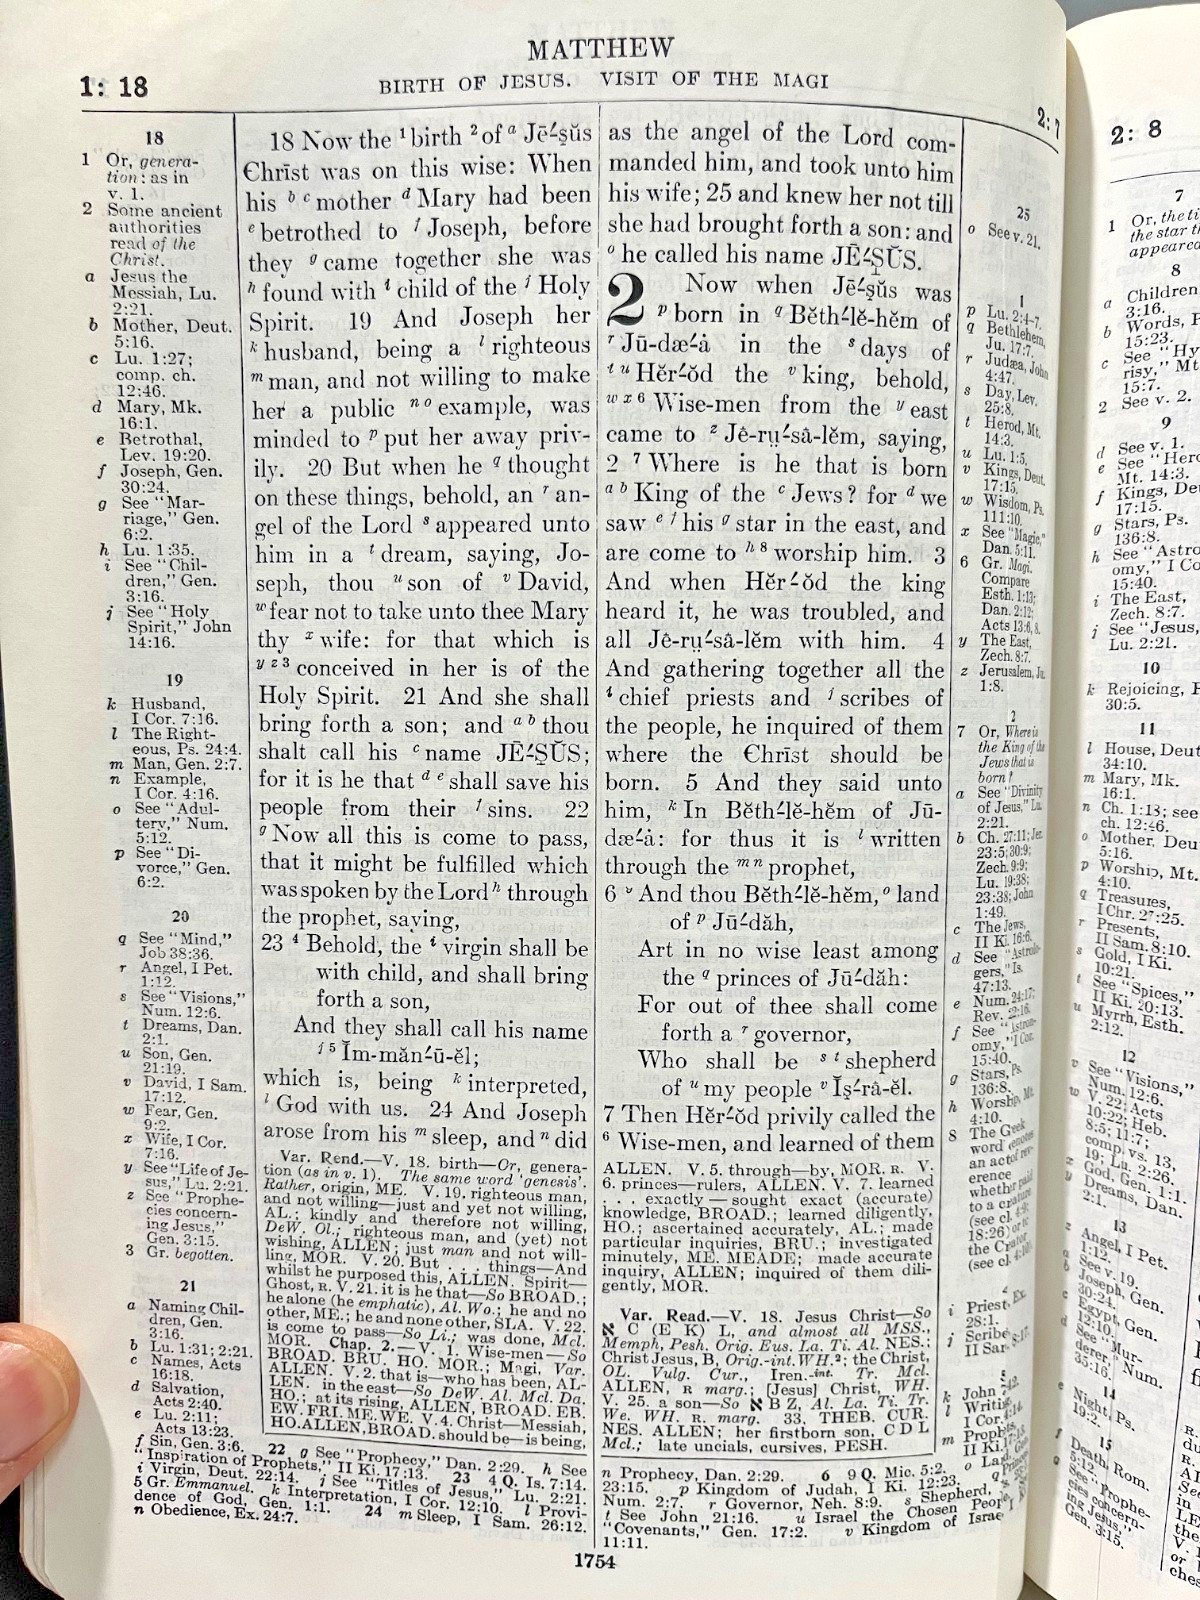 MATTHEW
1: 18
BIRTH OF JESUS. VISIT OF THE MAGI
2: 7
18
1 Or, genera-
tion: as in
v. 1.
2 Some ancient
authorities
read of the
Christ.
a Jesus the
Messiah, Lu.
2:21.
b Mother, Deut.
5:16.
c Lu. 1:27;
comp. ch.
12:46.
d Mary, Mk.
16:1.
e Betrothal,
Lev. 19:20.
f Joseph, Gen.
30:24.
g See "Mar-
riage," Gen.
6:2.
h Lu. 1:35.
i See "Chil-
dren," Gen.
3:16.
j See "Holy
Spirit," John
14:16.
19
k Husband,
I Cor. 7:16.
l The Right-
eous, Ps. 24:4.
m Man, Gen. 2:7.
n Example,
I Cor. 4:16.
o See "Adul-
tery," Num.
5:12.
p See "Di-
vorce," Gen.
6:2.
20
q See "Mind,"
Job 38:36.
r Angel, I Pet.
1:12.
s See "Visions,"
Num. 12:6.
t Dreams, Dan.
2:1.
u Son, Gen.
21:19.
v David, I Sam.
17:12.
w Fear, Gen.
9:2.
x Wife, I Cor.
7:16.
y See "Life of Je-
sus," Lu. 2:21.
z See "Prophe-
cies concern-
ing Jesus,"
Gen. 3:15.
3 Gr. begotten.
21
a Naming Chil-
dren, Gen.
3:16.
b Lu. 1:31; 2:21.
c Names, Acts
16:18.
d Salvation,
Acts 2:40.
e Lu. 2:11;
Acts 13:23.
18 Now the 1 birth 2 of a Jē´ṣŭs
Chrīst was on this wise: When
his b c mother d Mary had been
e betrothed to f Joseph, before
they g came together she was
h found with i child of the j Holy
Spirit. 19 And Joseph her
k husband, being a l righteous
m man, and not willing to make
her a public n o example, was
minded to p put her away priv-
ily. 20 But when he q thought
on these things, behold, an r an-
gel of the Lord s appeared unto
him in a t dream, saying, Jo-
seph, thou u son of v David,
w fear not to take unto thee Mary
thy x wife: for that which is
y z 3 conceived in her is of the
Holy Spirit. 21 And she shall
bring forth a son; and a b thou
shalt call his c name JĒ´ṢŬS;
for it is he that d e shall save his
people from their f sins. 22
g Now all this is come to pass,
that it might be fulfilled which
was spoken by the Lord h through
the prophet, saying,
23 4 Behold, the i virgin shall be
with child, and shall bring
forth a son,
And they shall call his name
j 5 Ĭm-măn´ū-ĕl;
which is, being k interpreted,
l God with us. 24 And Joseph
arose from his m sleep, and n did
Var. Rend.—V. 18. birth—Or, genera-
tion (as in v. 1). The same word 'genesis'.
Rather, origin, ME. V. 19. righteous man,
and not willing—just and yet not willing,
AL.; kindly and therefore not willing,
DeW. Ol.; righteous man, and (yet) not
wishing, ALLEN; just man and not will-
ling, MOR. V. 20. But . . things—And
whilst he purposed this, ALLEN. Spirit—
Ghost, R. V. 21. it is he that—So BROAD.;
he alone (he emphatic), Al. Wo.; he and no
other, ME.; he and none other, SLA. V. 22.
is come to pass—So Li.; was done, Mcl.
MOR. Chap. 2.—V. 1. Wise-men—So
BROAD. BRU. HO. MOR.; Magi, Var.
ALLEN. V. 2. that is—who has been, AL-
LEN. in the east—So DeW. Al. Mcl. Da.
HO.; at its rising, ALLEN, BROAD. EB.
EW. FRI. ME. WE. V. 4. Christ—Messiah,
HO. ALLEN, BROAD. should be—is being,
as the angel of the Lord com-
manded him, and took unto him
his wife; 25 and knew her not till
she had brought forth a son: and
o he called his name JĒ´ṢŬS.
2 Now when Jē´ṣŭs was
p born in q Bĕth´lĕ-hĕm of
r Jū-dæ´ȧ in the s days of
t u Hĕr´ŏd the v king, behold,
w x 6 Wise-men from the y east
came to z Jê-rṳ´sâ-lĕm, saying,
2 7 Where is he that is born
a b King of the c Jews? for d we
saw e f his g star in the east, and
are come to h 8 worship him. 3
And when Hĕr´ŏd the king
heard it, he was troubled, and
all Jê-rṳ´sâ-lĕm with him. 4
And gathering together all the
i chief priests and j scribes of
the people, he inquired of them
where the Chrīst should be
born. 5 And they said unto
him, k In Bĕth´lĕ-hĕm of Jū-
dæ´ȧ: for thus it is l written
through the m n prophet,
6 9 And thou Bĕth´lĕ-hĕm, o land
of p Jū´dăh,
Art in no wise least among
the q princes of Jū´dăh:
For out of thee shall come
forth a r governor,
Who shall be s t shepherd
of u my people v Ĭṣ´râ-ĕl.
7 Then Hĕr´ŏd privily called the
6 Wise-men, and learned of them
ALLEN. V. 5. through—by, MOR. R. V.
6. princes—rulers, ALLEN. V. 7. learned
. . exactly—sought exact (accurate)
knowledge, BROAD.; learned diligently,
HO.; ascertained accurately, AL.; made
particular inquiries, BRU.; investigated
minutely, ME. MEADE; made accurate
inquiry, ALLEN; inquired of them dili-
gently, MOR.
Var. Read.—V. 18. Jesus Christ—So
ℵ C (E K) L, and almost all MSS.,
Memph. Pesh. Orig. Eus. La. Ti. Al. NES.;
Christ Jesus, B, Orig.-int. WH.2; the Christ,
OL. Vulg. Cur., Iren.-int. Tr. Mcl.
ALLEN, R marg.; [Jesus] Christ, WH.
V. 25. a son—So ℵ B Z, Al. La. Ti. Tr.
We. WH. R. marg. 33. THEB. CUR.
NES. ALLEN; her firstborn son, C D L
Mcl.; late uncials, cursives, PESH.
25
o See v. 21.
1
p Lu. 2:4-7.
q Bethlehem,
Ju. 17:7.
r Judæa, John
4:47.
s Day, Lev.
25:8.
t Herod, Mt.
14:3.
u Lu. 1:5.
v Kings, Deut.
17:15.
w Wisdom, Ps.
111:10.
x See "Magic,"
Dan. 5:11.
6 Gr. Magi.
Compare
Esth. 1:13;
Dan. 2:12;
Acts 13:6, 8.
y The East,
Zech. 8:7.
z Jerusalem, Ju.
1:8.
2
7 Or, Where is
the King of the
Jews that is
born?
a See "Divinity
of Jesus," Lu.
2:21.
b Ch. 27:11; Jer.
23:5; 30:9;
Zech. 9:9;
Lu. 19:38;
23:38; John
1:49.
c The Jews,
II Ki. 16:6.
d See "Astrolo-
gers," Is.
47:13.
e Num. 24:17;
Rev. 22:16.
f See "Astron-
omy," I Cor.
15:40.
g Stars, Ps.
136:8.
h Worship, Mt.
4:10.
8 The Greek
word denotes
an act of rev-
erence
whether paid
to a creature
(see ch. 4:9;
18:26) or to
the Creator
(see ch. 4:10).
i Priest, Ex.
28:1.
j Scribe,
II Sam. 8:17.
k John 7:42.
l
I Cor. 4:14.
m
II Ki. 17:13.
f Sin, Gen. 3:6. 22 g See "Prophecy," Dan. 2:29. h See
"Inspiration of Prophets," II Ki. 17:13. 23 4 Q. Is. 7:14.
i Virgin, Deut. 22:14. j See "Titles of Jesus," Lu. 2:21.
5 Gr. Emmanuel. k Interpretation, I Cor. 12:10. l Provi-
dence of God, Gen. 1:1. 24 m Sleep, I Sam. 26:12.
n Obedience, Ex. 24:7.
n Prophecy, Dan. 2:29. 6 9 Q. Mic. 5:2. o
23:15. p Kingdom of Judah, I Ki. 12:23. q
Num. 2:7. r Governor, Neh. 8:9. s Shepherd,
t See John 21:16. u Israel the Chosen
"Covenants," Gen. 17:2. v Kingdom of
11:11.
1754
2: 8
7
1 Or, the
the star
appeared
8
a Children
3:16.
b Words,
15:23.
c See
15:7.
2 See v. 2.
9
d See v. 1.
e See
Mt. 14:3.
f Kings,
17:15.
g Stars, Ps.
136:8.
h See
15:40.
i The East,
Zech. 8:7.
j See "Jesus,
Lu. 2:21.
10
k Rejoicing,
30:5.
11
l House,
34:10.
m Mary, Mk.
16:1.
n Ch. 1:18; see
ch. 12:46.
o Mother,
5:16.
p Worship, Mt.
4:10.
q Treasures,
I Chr. 27:25.
r Presents,
II Sam. 8:10.
s Gold, I Ki.
10:21.
t See "Spices,"
II Ki. 20:13.
u Myrrh, Esth.
2:12.
12
v See "Visions,"
Num. 12:6.
w V. 22; Acts
10:22; Heb.
8:5; 11:7;
comp. vs. 13,
19; Lu. 2:26.
x God, Gen. 1:1.
y Dreams, Dan.
2:1.
13
z Angel, I Pet.
1:12.
a See v. 19.
b Joseph, Gen.
30:24.
c Egypt, Gen.
12:10.
d See "Mur-
derer," Num.
35:16.
14
e Night, Ps.
19:2.
15
f Death, Rom.
5:12.
g See "Prophe-
cies concern-
ing Jesus,"
Gen. 3:15.